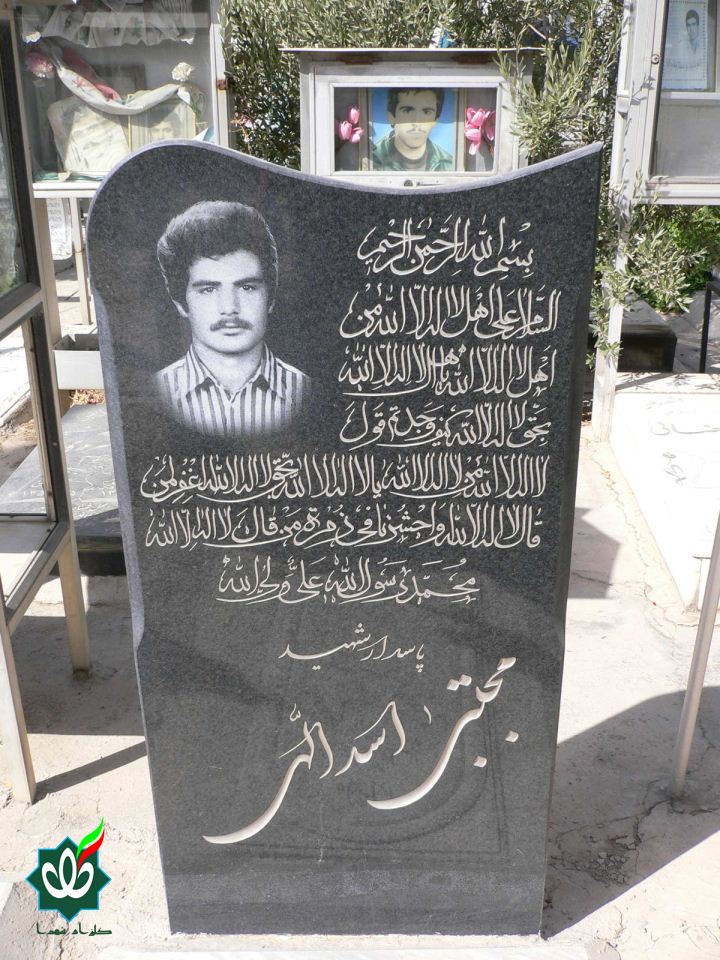 بسم الله الرحمن الرحیم
السلام علی اهل لا اله الا الله من
اهل لا اله الا الله یا اهل لا اله الا الله
بحق لا اله الا الله کیف وجدتم قول
لا اله الا الله من لا اله الا الله یا لا اله الا الله بحق لا اله الا الله اغفر لمن
قال لا اله الا الله واحشرنا فی زمرة من قال لا اله الا الله
محمد رسول الله علی ولی الله
پاسدار شهید
مجتبی اسداللهی
گلزار شهدا